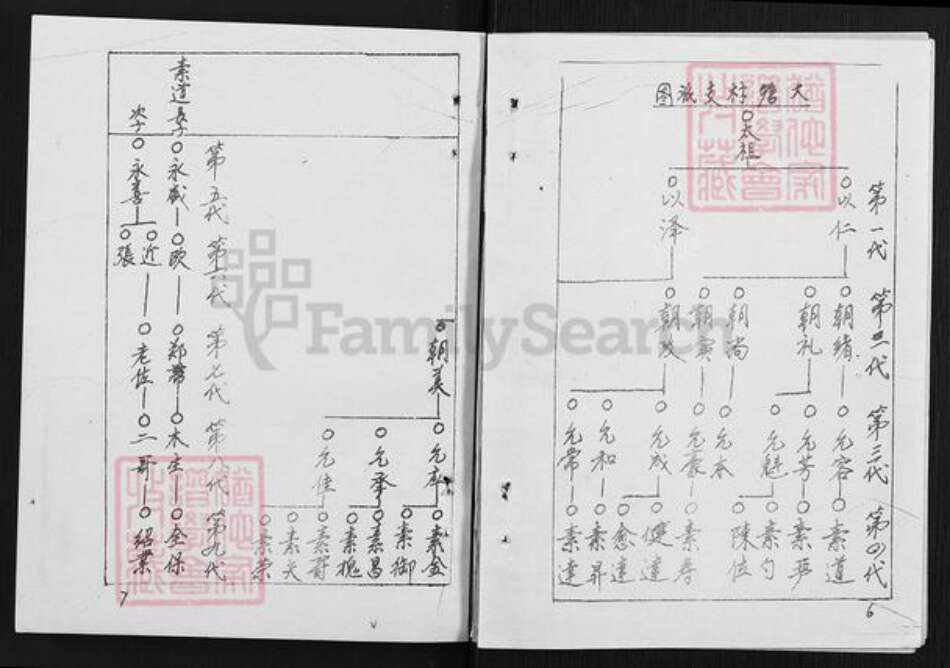 大
村支派图
太祖
第一代
以仁
以泽
第二代
朝绪
朝礼
朝尚
朝寅
朝政
第三代
允容
允芳
允魁
允本
允成
允和
允常
第四代
素道
素
素勺
陈位
素春
健达
愈达
素昇
素达
6
朝美
允率
允承
允佳
素金
素御
素昌
素槐
素
素矢
素荣
素道長子
次子
第五代
永盛
永喜
第六代
欧
近
張
第七代
郑带
老位
第八代
木生
二哥
第九代
全保
绍業
7
FamilySearch